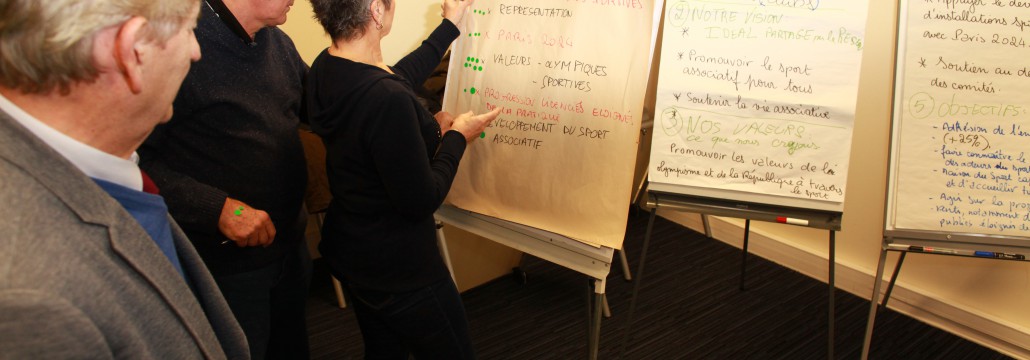 REPRESENTATION
PARIS 2024
VALEURS - OLYMPIQUES
- SPORTIVES
PROGRESSION LICENCIÉS
DE LA PRATIQUE
DÉVELOPPEMENT DU SPORT
ASSOCIATIF
② NOTRE VISION
* IDEAL PARTAGE
* Promouvoir le sport
associatif pour tous
* Soutenir la vie associative
③ NOS VALEURS
ce que nous croyons
Promouvoir les valeurs de
olympisme et de la République à travers
le sport
d'installations
avec Paris 2024
* Soutien au
des comités
⑤ OBJECTIFS
- Adhésion de
(+25%)
- faire connaître le
des acteurs du
Maison du Sport
et d'accueillir
- Agir sur la
notamment
publics